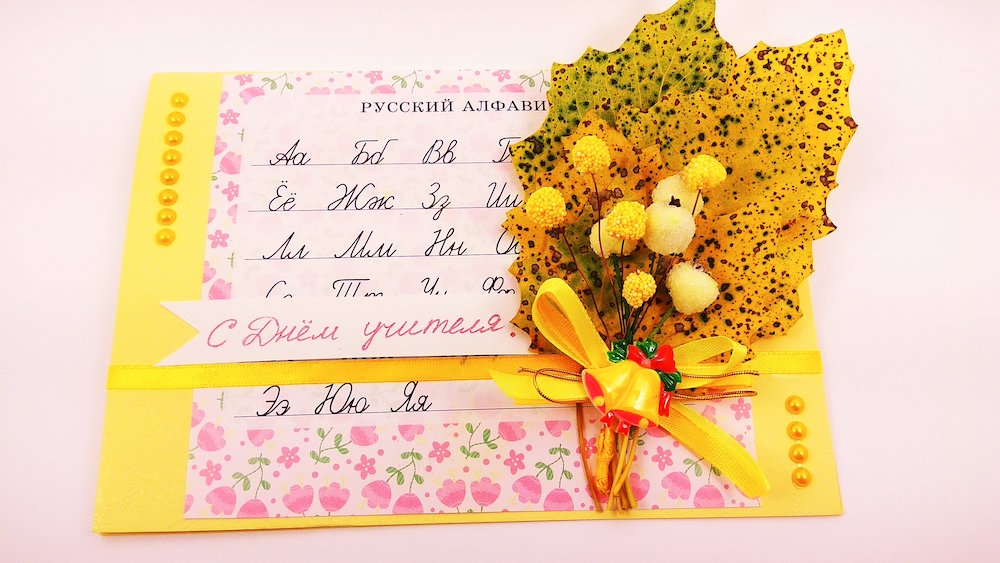 РУССКИЙ АЛФАВИ
Аа Бб Вв
Ёё Жж Зз Ии
Лл Мм Нн
С Днём учителя
Ээ Юю Яя